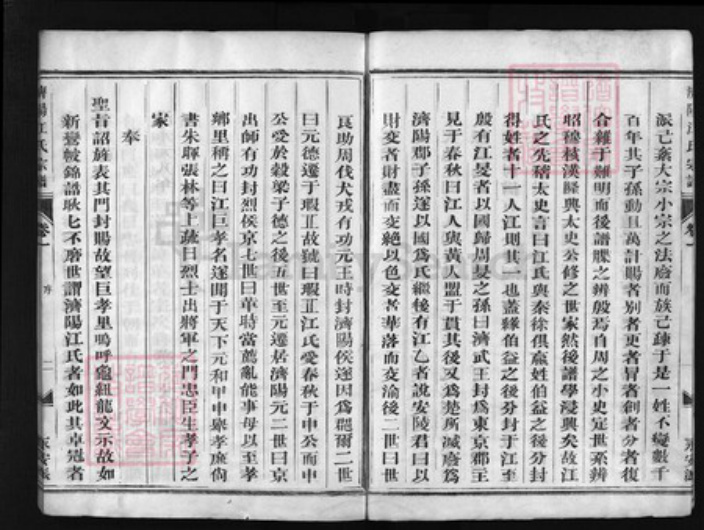 濟陽江氏宗譜 卷一
派己紊大宗小宗之法廢而族己疎于是一姓不變數千
百年其子孫動且萬計賜者别者更者冒者創者分者復
合雜于難明而後譜牒之辨殷焉自周之小史定世系辨
昭穆核漢降興太史公修之世家然後譜學浸興矣故江
氏之先稽太史言曰江氏與秦徐俱嬴姓伯益之後分封
得姓者十一人江則其一也蓋緣伯益之後分封于江至
殷有江旻者以國歸周旻之孫曰濟武王封為東京郡王
見于春秋曰江人與黃人盟于貫其後又為楚所滅廢為
濟陽郡子孫遂以國為氏繼後有江乙者說安陵君曰以
財交者財盡而交絕以色交者華落而交渝後二世曰世
良助周伐犬戎有功元王時封濟陽侯遂因為罷爾二世
曰元德遷于瑕丘故號曰瑕丘江氏受春秋于申公而申
公受於穀梁子德之後五世至元遷居濟陽元二世曰京
出師有功封烈侯京七世曰革時當薦亂能事母以至孝
鄉里稱之曰江巨孝名遂聞于天下元和甲申舉孝廉尙
書朱暉張林等上疏曰烈士出將軍之門忠臣生孝子之
家
奉
聖旨詔旌表其門封賜故望巨孝里嗚呼龜紐龍文示故如
新鸞皷錦誥耿七不磨世謂濟陽江氏者如此其卓冠者
濟陽江氏宗譜 卷一 序 二